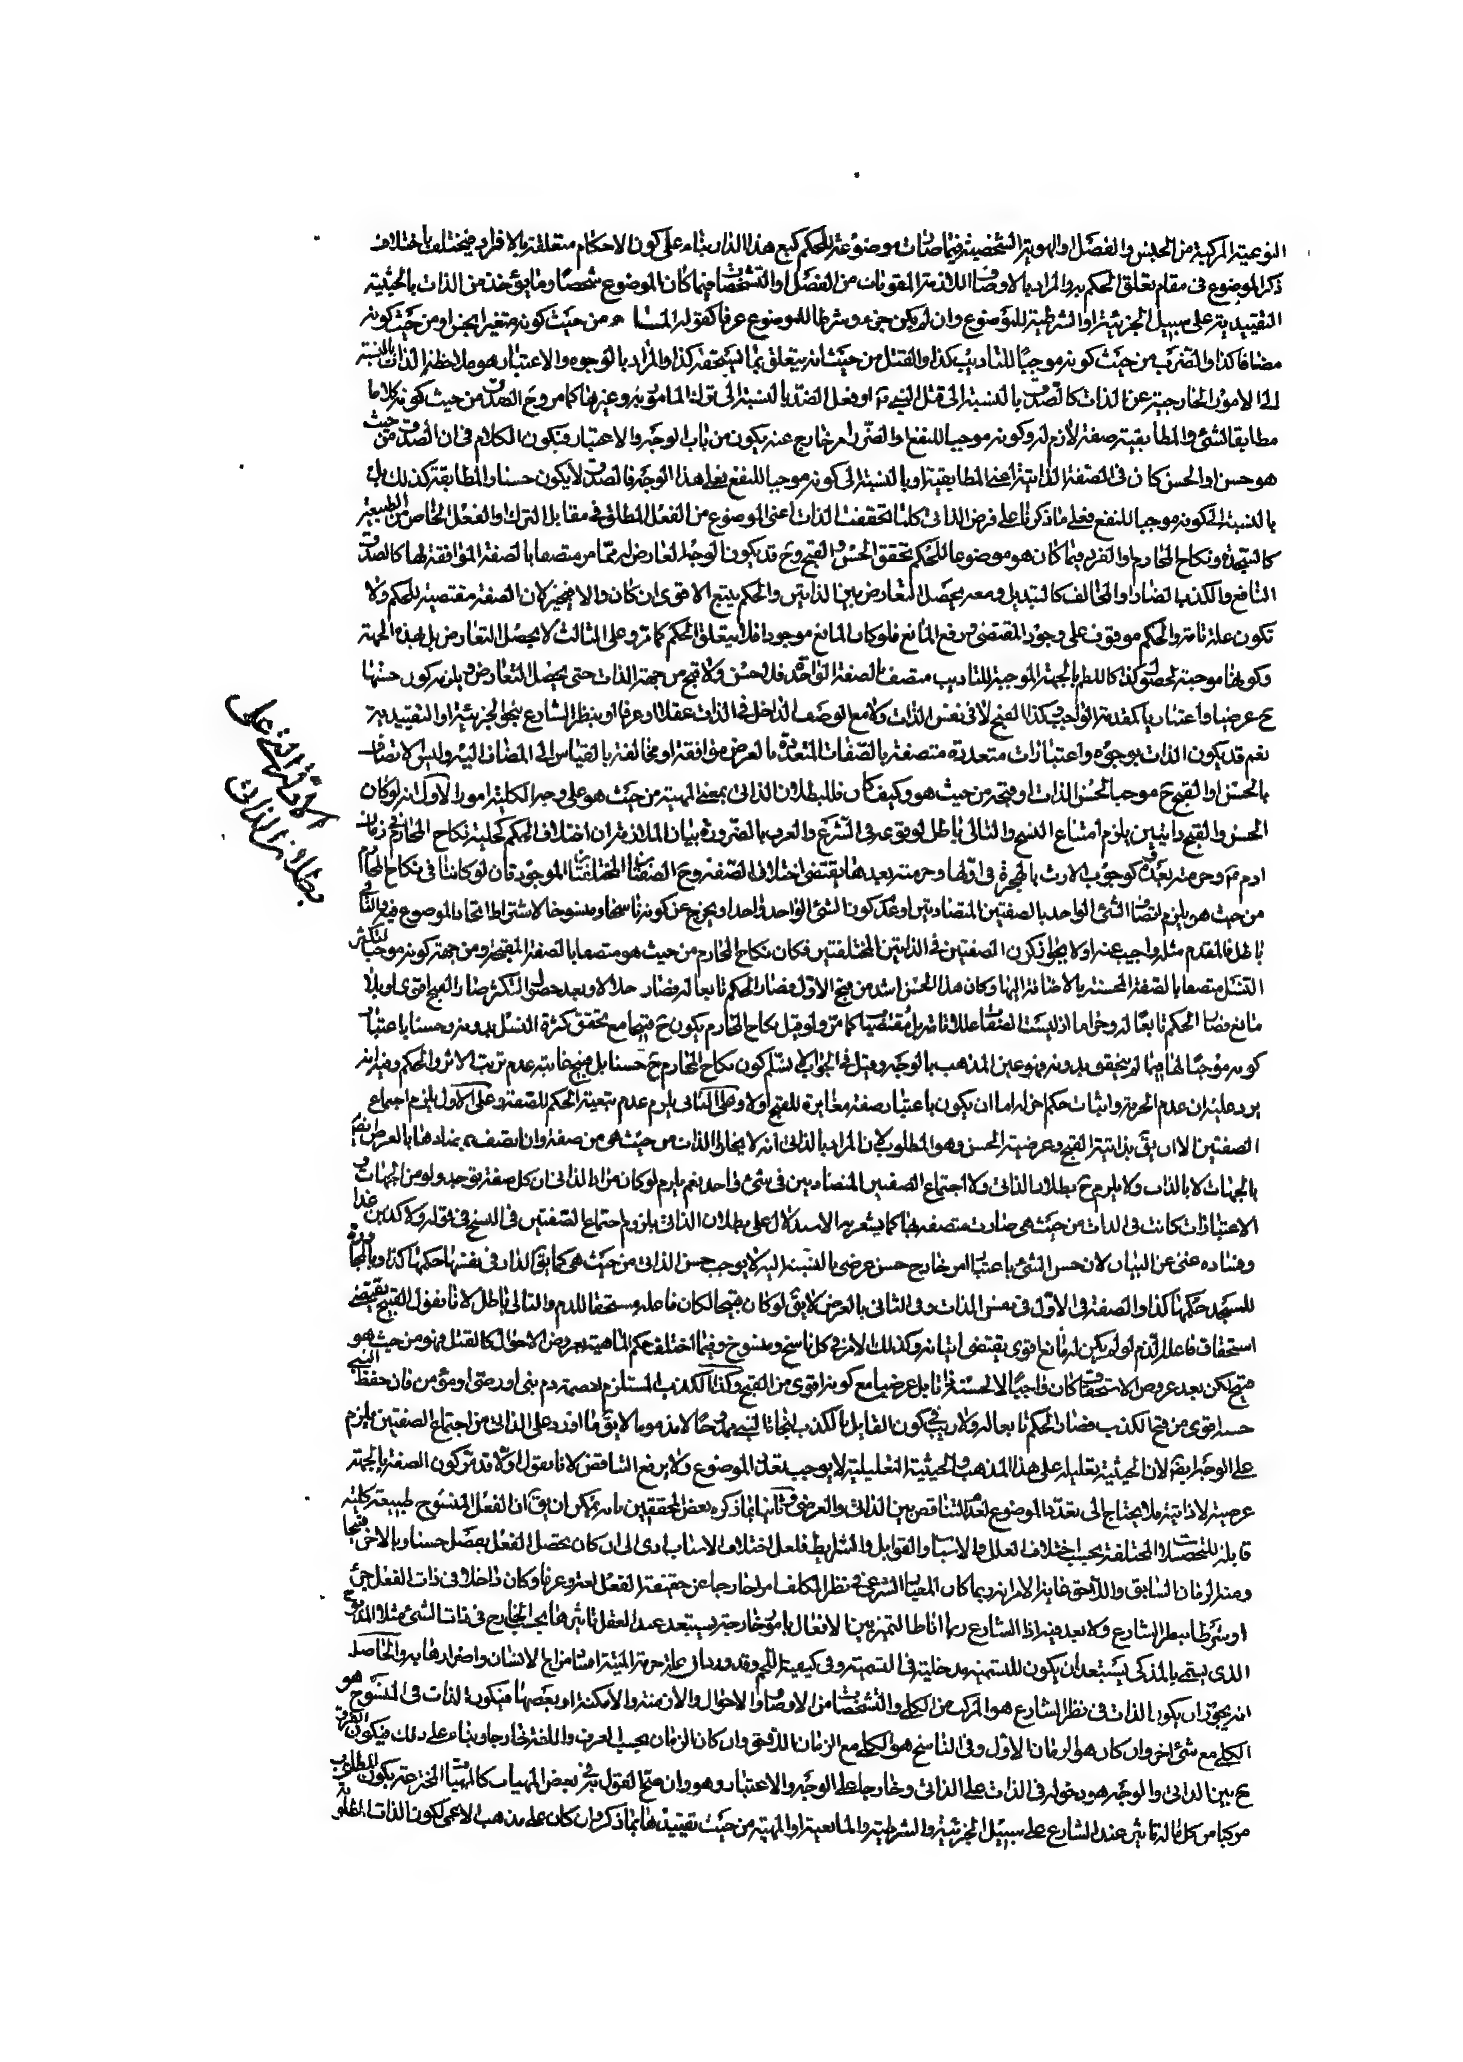 النوعية المركبة من الجنس والفصل والهوية الشخصية فيما صارت موضوعة للحكم كبيع هذا الدار بناء على كون الاحكام متعلقة بالافراد فيختلف باختلاف
ذكر الموضوع فى مقام تعلق الحكم به والمراد بالاوصاف اللازمة المقومات من الفصل او التشخصات فيما كان الموضوع شخصا وما يؤخذ من الذات بالحيثية
التقييدية على سبيل الجزئية او الشرطية للموضوع وان لم يكن جزء وشرطا للموضوع عرفا كقوله الماء من حيث كونه متغيرا نجس او من حيث كونه
مضافا كذا والضرب من حيث كونه موجبا للتاديب كذا والقتل من حيث انه يتعلق بما يستحقه كذا والمراد بالوجوه والاعتبار هو ملاحظة الذات بالنسبة
الى الامور الخارجية عن الذات كالصدق بالنسبة الى قتل النبى او فعل الضد بالنسبة الى ترك المامور به وغيرها كما مر وح الصدق من حيث كونه كلاما
مطابقا لشئ والمطابقية صفة لازم له وكونه موجبا للنفع او الضرر امر خارج عنه يكون من باب الوجه والاعتبار فيكون الكلام فى ان الصدق من حيث
هو حسن او الحسن كان فى الصفة الذاتية اعنى المطابقية او بالنسبة الى كونه موجبا للنفع فعلى هذا الوجه فالصدق لا يكون حسنا والمطابقة كذلك بل
بالنسبة الى كونه موجبا للنفع فعلى ما ذكرنا على فرض الذاتى كلما تحققت الذات اعنى الموضوع من الفعل المطلق فى مقابل الترك او الفعل الخاص من الطبيعة
كالسجدة ونكاح المحارم او الفرد فيما كان هو موضوعا للحكم تحقق الحسن والقبح وح قد يكون الوجه العارض له مما مر متصفا بالصفة الموافقة لها كالصدق
النافع والكذب الضار او المخالف كالتبديل ومعه يحصل التعارض بين الذاتيين والحكم يتبع الاقوى ان كان والا فيخير لان الصفة مقتضية للحكم ولا
تكون علة تامة والحكم موقوف على وجود المقتضى ورفع المانع فلو كان المانع موجودا فلا يتعلق الحكم كما مر وعلى الثالث لا يحصل التعارض بل هذه الجهة
وكونها موجبة لحصول كذا كاللطم بالجهة الموجبة للتاديب متصف بالصفة الواحدة فلا حسن ولا قبح من جهة الذات حتى يحصل التعارض ويلزمه كون حسنها
ح عرضيا واعتباريا كمقدمة الواجب وكذا القبح لا فى نفس الذات ولا مع الوصف الداخل فى الذات عقلا او عرفا او بنظر الشارع بنحو الجزئية او التقييدية
نعم قد يكون الذات بوجوه واعتبارات متعددة متصفة بالصفات المتعددة بالعرض موافقة او مخالفة بالقياس الى المضاف اليه وليس الاتصاف
بالحسن او القبح ح موجبا لحسن الذات او قبحه من حيث هو وكيف كان فالبطلان الذاتى بمعنى المهية من حيث هو على وجه الكلية امور الاول انه لو كان
الحسن والقبح ذاتيين يلزم امتناع النسخ والتالى باطل لوقوعه فى الشرع والعرف بالضرورة بيان الملازمة ان اختلاف الحكم كحلية نكاح المحارم فى زمان
ادم وحرمته بعده وكوجوب الارث بالهجرة فى اولها وحرمته بعدها يقتضى اختلاف الصفة وح الصفتان المختلفتان الموجودتان لو كانتا فى نكاح المحارم
من حيث هو يلزم اتصاف الشئ الواحد بالصفتين المتضادتين او عدم كون الشئ الواحد واحدا ويخرج عن كونه ناسخا ومنسوخا لاشتراط اتحاد الموضوع فيه والتالى
باطل فالمقدم مثله واجيب عنه اولا بجواز كون الصفتين فى الذاتين المختلفتين فكان نكاح المحارم من حيث هو متصفا بالصفة المقبحة ومن جهة كونه موجبا لتكثير
النسل متصفا بالصفة الحسنة بالاضافة اليها وكان هذا الحسن اشد من قبح الاول فصار الحكم تابعا له فصار حلالا وبعد حصول التكثر صار القبح اقوى او بلا
مانع فصار الحكم تابعا له وحراما اذ ليست الصفات عللا تامة بل مقتضيات كما مر ولو قيل نكاح المحارم يكون ح قبيحا مع تحقق كثرة النسل بدونه وحسنا باعتبار
كونه موجبا لها فيما لم يتحقق بدونه وهو عين المذهب بالوجه وقيل فى الجواب لا نسلم كون نكاح المحارم ح حسنا بل قبيح غايته عدم ترتب الاثر والحكم وفيه انه
يرد عليه ان عدم الحرمة واثبات حكم اخر له اما ان يكون باعتبار صفة مغايرة للقبح اولا وعلى الثانى يلزم عدم تبعية الحكم للصفة وعلى الاول يلزم اجتماع
الصفتين الا ان يق بذاتية القبح وعرضية الحسن وهو المطلوب لان المراد بالذاتى انه لا يخلو الذات من حيث هى من صفة وان اتصف بمضادها بالعرض
بالجهات لا بالذات ولا يلزم ح بطلان الذاتى ولا اجتماع الصفتين المتضادتين فى شئ واحد نعم يلزم لو كان مراد الذاتى ان كل صفة يوجد ولو من الجهات و
الاعتبارات كانت فى الذات من حيث هى صارت متصفة بها كما يشعر به الاستدلال على بطلان الذاتى بلزوم اجتماع الصفتين فى النسخ فى قوله ولاكذبن غدا
وفساده غنى عن البيان لان حسن الشئ باعتبار امر خارج حسن عرضى بالنسبة اليه لا يوجب حسن الذاتى من حيث هى كما يق الدار فى نفسها حكمها كذا وبالمجاورة
للمسجد حكمها كذا والصفة فى الاول فى نفس الذات وفى الثانى بالعرض لا يق لو كان قبيحا لكان فاعله مستحقا للذم والتالى باطل لانا نقول القبيح يقتضى
استحقاق فاعله الذم لو لم يكن له مانع اقوى يقتضى اتيانه وكذلك الامر فى كل ناسخ ومنسوخ وفيما اختلف حكم الماهية بعروض الاحوال كالقتل فهو من حيث هو
قبيح لكن بعد عروض الاستحقاق كان واجبا لا لحسنه ذاتا بل عرضيا مع كونه اقوى من القبح وكذا الكذب المستلزم لعصمة دم نبى او وصى او مؤمن فان حفظ النبى
حسنه اقوى من قبح الكذب فصار الحكم تابعا له ولا ريب فى كون القايل بالكذب لنجاة النبى ممدوحا لا مذموما لا يق ما اورد على الذاتى من اجتماع الصفتين يلزم
على الوجه ايضا لان الحيثية تعليلية على هذا المذهب والحيثية التعليلية لا يوجب تعدد الموضوع ولا يرفع التناقض لانا نقول اولا قد مر كون الصفة بالجهة
عرضية لا ذاتية فلا يحتاج الى تعدد الموضوع لعدم التناقض بين الذاتى والعرضى وثانيا بما ذكره بعض المحققين بانه يمكن ان يق ان الفعل المنسوخ طبيعة كلية
قابلة للتحصلات المختلفة بحسب اختلاف العلل والاسباب والقوابل والشرايط فلعل اختلاف الاسباب ادى الى ان كان يحصل الفعل بفصل حسنا وبالاخر قبيحا
ومنه الزمان السابق واللاحق غاية الامر انه ربما كان المعيار الشرعى فى نظر المكلف امرا خارجا عن حقيقة الفعل لغة وعرفا وكان داخلا فى ذات الفعل جزء
او شرطا بنظر الشارع ولا بعد فيه اذ الشارع ربما اناط التميز بين الافعال بامور خارجية يستبعد عند العقل تاثيرها بحسب الخارج فى ذات الشئ مثلا المذبوح
الذى يسمى بالمذكى يستبعد ان يكون للتسمية مدخلية فى التسمية وفى كيفية اللحم وقد ورد ان علة حرمة الميتة افساد مزاج الانسان واضرارها به والحاصل
انه يجوز ان يكون الذات فى نظر الشارع هو المركب من الكلى والتشخصات من الاوصاف والاحوال والازمنة والامكنة او بعضها فيكون الذات فى المنسوخ هو
الكلى مع شئ اخر وان كان هو الزمان الاول وفى الناسخ هو الكلى مع الزمان اللاحق وان كان الزمان بحسب العرف واللغة خارجا وبناء على ذلك فيكون الفرق
ح بين الذاتى والوجه هو دخوله فى الذات على الذاتى وخارجا على الوجه والاعتبار وهو وان صح القول به فى بعض المهيات كالمهيات المخترعة يكون المطلوب
مركبا من كل ما له تاثير عند الشارع على سبيل الجزئية والشرطية والمانعية او المهية من حيث تقييدها بما ذكر وان كان على مذهب الاعمى لكون الذات المعلق به
الاول النسخ على
بطلان الذاتى